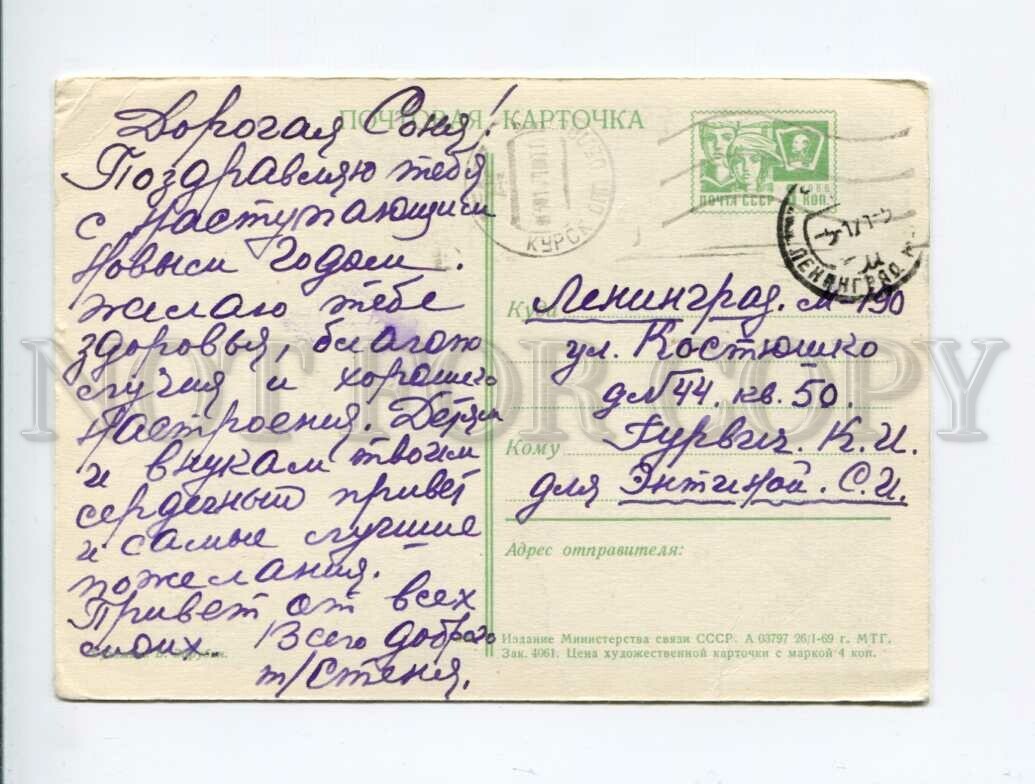 ПОЧТОВАЯ КАРТОЧКА
Дорогая Соня!
Поздравляю тебя
с Наступающим
Новым Годом.
желаю тебе
здоровья, благопо
лучия и хорошего
Настроения. Детям
и внукам твоим
сердечный привет
и самые лучшие
пожелания.
Привет от всех
моих. Всего доброго
т/Стеня.
ПОЧТА СССР
КОП.
КУРСК
ЛЕНИНГРАД
Куда Ленинград. М-190
ул. Костюшко
д№44. кв. 50.
Кому Гурвич. К.И.
для Энтиной. С.И.
Адрес отправителя:
Издание Министерства связи СССР. А 03797 26/I-69 г. МТГ.
Зак. 4061. Цена художественной карточки с маркой 4 коп.
NOT FOR COPY